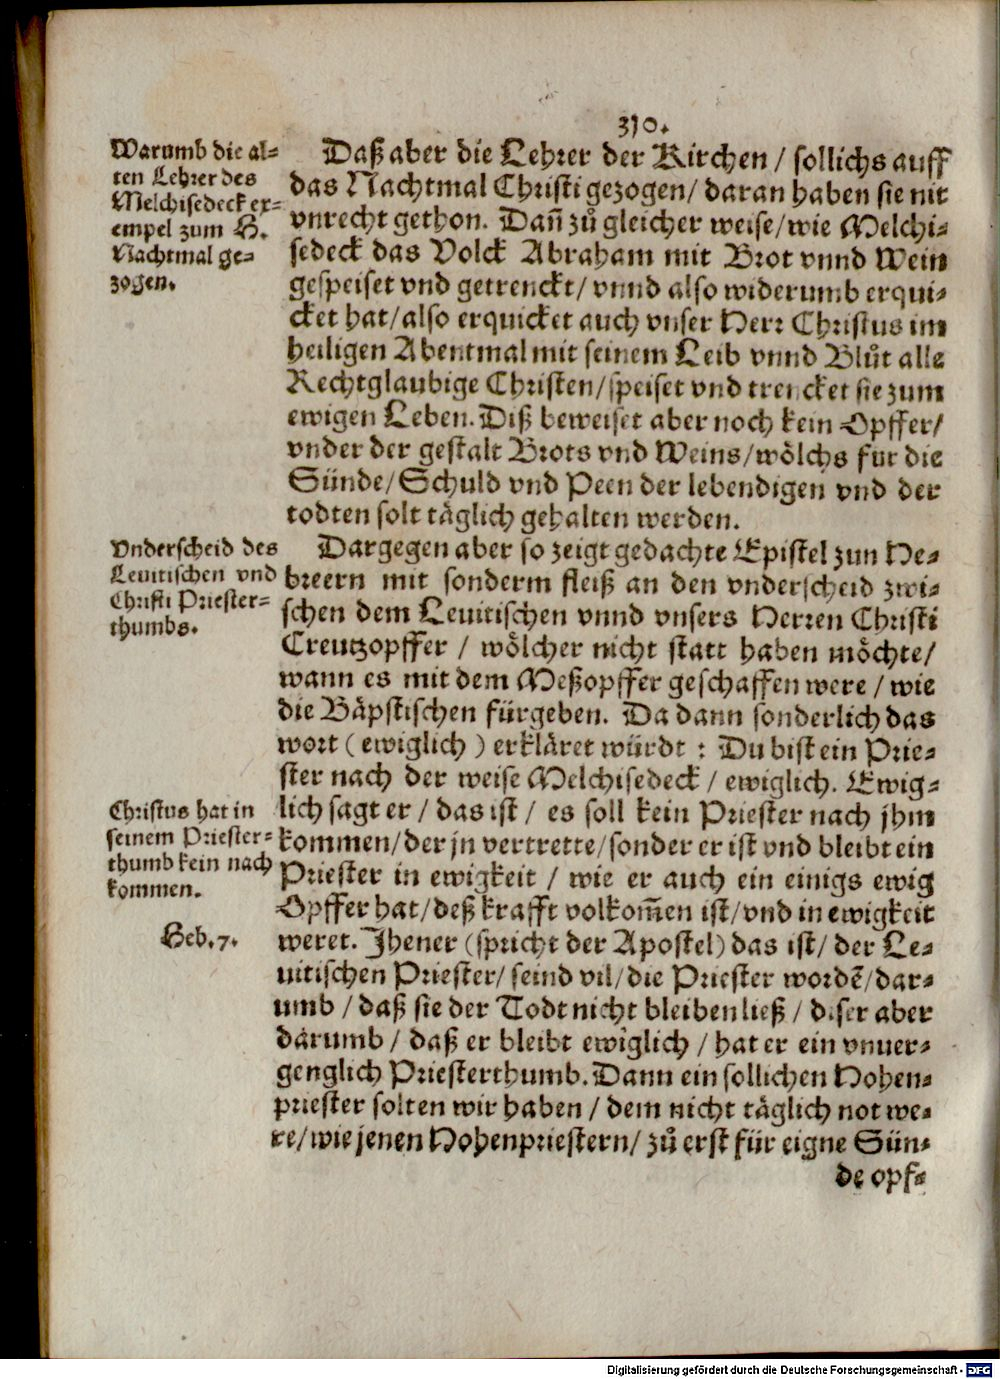 310.
Warumb die al⸗
ten Lehrer des
Melchisedeck ex⸗
empel zum H.
Nachtmal ge⸗
zogen.
Daß aber die Lehrer der Kirchen / sollichs auff
das Nachtmal Christi gezogen / daran haben sie nit
vnrecht gethon. Dañ zů gleicher weise / wie Melchi⸗
sedeck das Volck Abraham mit Brot vnnd Wein
gespeiset vnd getrenckt / vnnd also widerumb erqui⸗
cket hat / also erquicket auch vnser Herr Christus im
heiligen Abentmal mit seinem Leib vnnd Blůt alle
Rechtglaubige Christen / speiset vnd trencket sie zum
ewigen Leben. Diß beweiset aber noch kein Opffer /
vnder der gestalt Brots vnd Weins / wölchs für die
Sünde / Schuld vnd Peen der lebendigen vnd der
todten solt täglich gehalten werden.
Vnderscheid des
Leuitischen vnd
Christi Priester⸗
thumbs.
Dargegen aber so zeigt gedachte Epistel zun He⸗
breern mit sonderm fleiß an den vnderscheid zwi⸗
schen dem Leuitischen vnnd vnsers Herren Christi
Creutzopffer / wölcher nicht statt haben möchte /
wann es mit dem Meßopffer geschaffen were / wie
die Bäpstischen fürgeben. Da dann sonderlich das
wort ( ewiglich ) erkläret würdt : Du bist ein Prie⸗
ster nach der weise Melchisedeck / ewiglich. Ewig⸗
Christus hat in
seinem Priester⸗
thumb kein nach
kommen.
lich sagt er / das ist / es soll kein Priester nach jhm
kommen / der jn vertrette / sonder er ist vnd bleibt ein
Priester in ewigkeit / wie er auch ein einigs ewig
Opffer hat / deß krafft volkom̃en ist / vnd in ewigkeit
Heb. 7.
weret. Jhener (spricht der Apostel) das ist / der Le⸗
uitischen Priester / seind vil / die Priester wordẽ / dar⸗
umb / daß sie der Todt nicht bleiben ließ / diser aber
darumb / daß er bleibt ewiglich / hat er ein vnuer⸗
genglich Priesterthumb. Dann ein sollichen Hohen⸗
priester solten wir haben / dem nicht täglich not we⸗
re / wie jenen Hohenpriestern / zů erst für eigne Sün⸗
de opf⸗
Digitalisierung gefördert durch die Deutsche Forschungsgemeinschaft - DFG